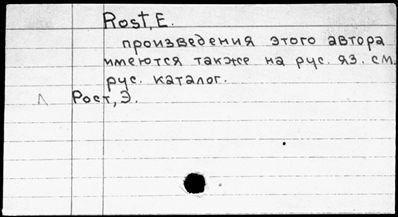 Rost, E.
произведения этого автора
имеются также на рус. яз. см.
рус. каталог.
Рост, Э.